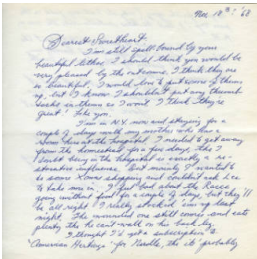 Dec 18th '68
Dearest Sweetheart
I'm still spell-bound by your
beautiful letter. I should think you would be
very pleased by the outcome. I think they are
so beautiful. I would love to put some of them
up, but I know I shouldn't put any thumb
tacks in them as I want. I think they're
great! Like you.
I'm in N.Y. now and staying for a
couple of days with my mother who has a
room here at the hospital. I needed to get away
from the homestead for a few days, tho I
doubt being in the hospital is exactly a re-
storative influence. But mainly I wanted
to do some Xmas shopping and couldn't ask
to take me in. I feel bad about the
going without food for a couple of days, but they'll
be all right. I really stocked 'em up last
night. The wounded one still comes and eats
plenty tho he can't walk on his back leg.
I thought I'd get a subscription to
"American Heritage" for, tho it's probably